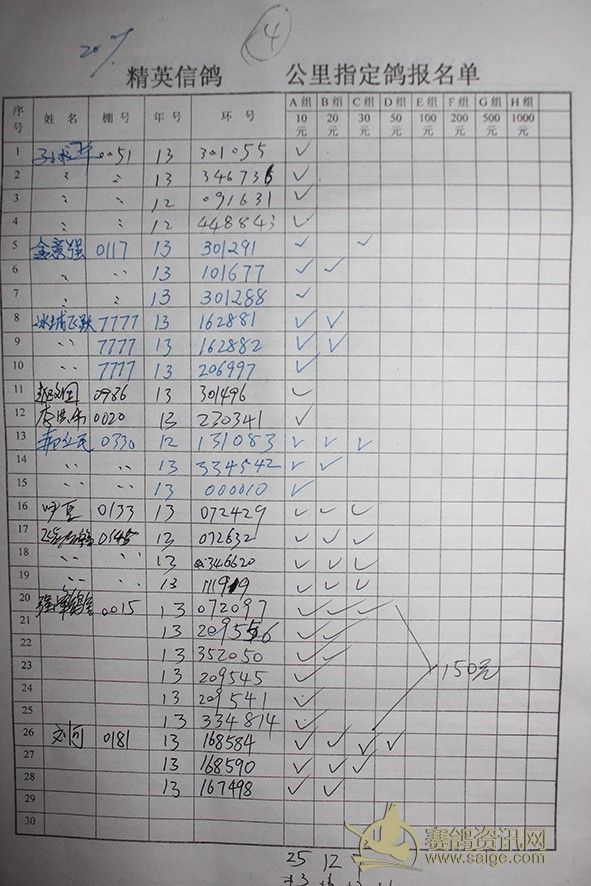 20%
4
精英信鸽 公里指定鸽报名单
序号 姓名 棚号 年号 环号 A组 B组 C组 D组 E组 F组 G组 H组
10元 20元 30元 50元 100元 200元 500元 1000元
1 0051 13 301055 ✓
2 〃 〃 13 346736 ✓
3 〃 〃 12 091631 ✓
4 〃 〃 12 448843 ✓
5 金意强 0117 13 301291 ✓ ✓
6 〃 〃 13 101677 ✓ ✓
7 〃 〃 13 301288 ✓
8 冰城飞跃 7777 13 162881 ✓ ✓
9 〃 7777 13 162882 ✓ ✓
10 〃 7777 13 206997 ✓ ✓
11 0986 13 301496 ✓
12 0020 13 230341 ✓
13 0330 12 131083 ✓ ✓ ✓
14 〃 〃 13 334542 ✓ ✓
15 〃 〃 13 000010 ✓
16 0133 13 072429 ✓ ✓ ✓
17 0145 13 072632 ✓ ✓ ✓
18 〃 〃 13 346620 ✓ ✓ ✓
19 〃 〃 13 ✓ ✓ ✓
20 强军鸽舍 0015 13 072097 ✓ ✓ ✓
21 13 209556 ✓ ✓
22 13 352050 ✓ ✓
23 13 209545 ✓
24 13 209541 ✓
25 13 334814 ✓
150元
26 刘可 0181 13 168584 ✓ ✓ ✓ ✓
27 13 168590 ✓ ✓ ✓
28 13 167498 ✓ ✓
29
30
25 12
赛鸽资讯网
www.saige.com